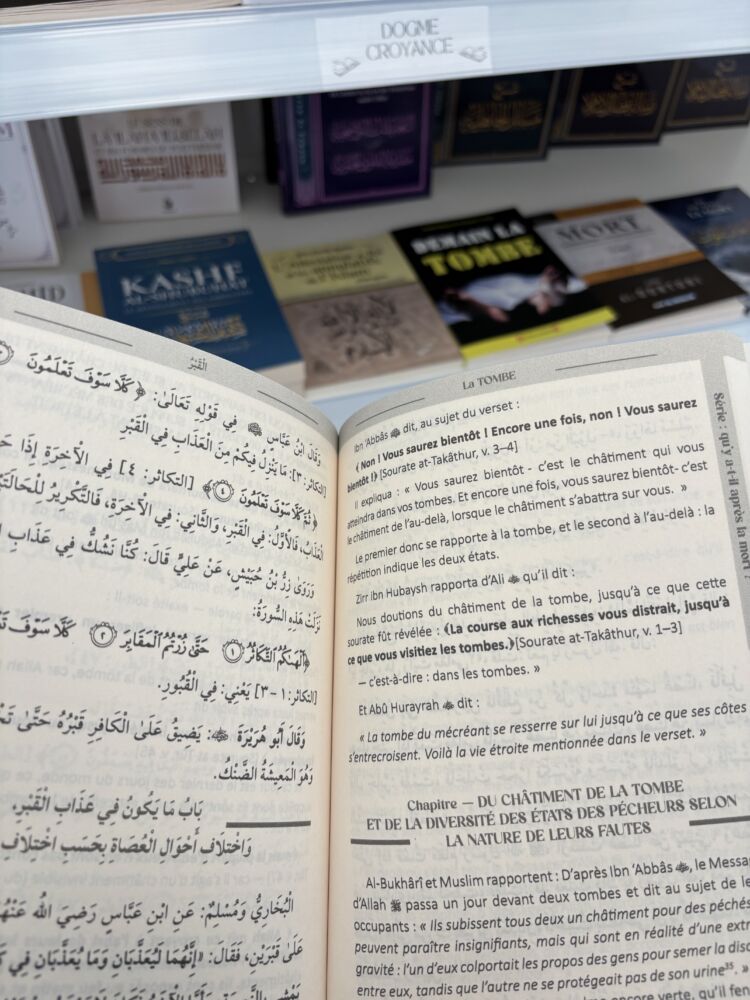 DOGME
CROYANCE
LE SENS DE
LA ILAHA ILLALLAH
KASHF
DEMAIN LA
TOMBE
MORT
الْقَبْرُ
وَقَالَ ابْنُ عَبَّاسٍ ﷺ فِي قَوْلِهِ تَعَالَىٰ: ﴿كَلَّا سَوْفَ تَعْلَمُونَ
[التكاثر: ٣]: مَا يَنْزِلُ فِيكُمْ مِنَ الْعَذَابِ فِي الْقَبْرِ
﴿ثُمَّ كَلَّا سَوْفَ تَعْلَمُونَ ٤﴾ [التكاثر: ٤] فِي الْآخِرَةِ إِذَا
الْعَذَابُ، فَالْأَوَّلُ: فِي الْقَبْرِ، وَالثَّانِي: فِي الْآخِرَةِ، فَالتَّكْرِيرُ لِلْحَالَتَيْنِ
وَرَوَى زِرُّ بْنُ حُبَيْشٍ، عَنْ عَلِيٍّ قَالَ: كُنَّا نَشُكُّ فِي عَذَابِ
نَزَلَتْ هَذِهِ السُّورَةُ:
﴿أَلْهَىٰكُمُ ٱلتَّكَاثُرُ ١ حَتَّىٰ زُرْتُمُ ٱلْمَقَابِرَ ٢ كَلَّا سَوْفَ
[التكاثر: ١-٣] يَعْنِي: فِي الْقُبُورِ.
وَقَالَ أَبُو هُرَيْرَةَ: يَضِيقُ عَلَى الْكَافِرِ قَبْرُهُ حَتَّىٰ
وَهُوَ الْمَعِيشَةُ الضَّنْكُ.
بَابُ مَا يَكُونُ فِي عَذَابِ الْقَبْرِ،
وَاخْتِلَافِ أَحْوَالِ الْعُصَاةِ بِحَسَبِ اخْتِلَافِ
الْبُخَارِيُّ وَمُسْلِمٌ: عَنِ ابْنِ عَبَّاسٍ رَضِيَ اللهُ عَنْهُمَا
عَلَى قَبْرَيْنِ، فَقَالَ: «إِنَّهُمَا لَيُعَذَّبَانِ وَمَا يُعَذَّبَانِ فِي
La TOMBE
Ibn 'Abbâs dit, au sujet du verset :
﴾ Non ! Vous saurez bientôt ! Encore une fois, non ! Vous saurez
bientôt !﴿ [Sourate at-Takâthur, v. 3–4]
Il expliqua : « Vous saurez bientôt - c'est le châtiment qui vous
atteindra dans vos tombes. Et encore une fois, vous saurez bientôt- c'est
le châtiment de l'au-delà, lorsque le châtiment s'abattra sur vous. »
Le premier donc se rapporte à la tombe, et le second à l'au-delà : la
répétition indique les deux états.
Zirr ibn Hubaysh rapporta d'Ali qu'il dit :
Nous doutions du châtiment de la tombe, jusqu'à ce que cette
sourate fût révélée : ﴾La course aux richesses vous distrait, jusqu'à
ce que vous visitiez les tombes.﴿[Sourate at-Takâthur, v. 1–3]
— c'est-à-dire : dans les tombes. »
Et Abû Hurayrah dit :
« La tombe du mécréant se resserre sur lui jusqu'à ce que ses côtes
s'entrecroisent. Voilà la vie étroite mentionnée dans le verset. »
Chapitre — DU CHÂTIMENT DE LA TOMBE
ET DE LA DIVERSITÉ DES ÉTATS DES PÉCHEURS SELON
LA NATURE DE LEURS FAUTES
Al-Bukhârî et Muslim rapportent : D'après Ibn 'Abbâs, le Messa
d'Allah ﷺ passa un jour devant deux tombes et dit au sujet de le
occupants : « Ils subissent tous deux un châtiment pour des péchés
peuvent paraître insignifiants, mais qui sont en réalité d'une extr
gravité : l'un d'eux colportait les propos des gens pour semer la disc
entre eux, tandis que l'autre ne se protégeait pas de son urine³⁵. »
encore verte, qu'il fen
Série : qu'y a-t-il après la mort ?